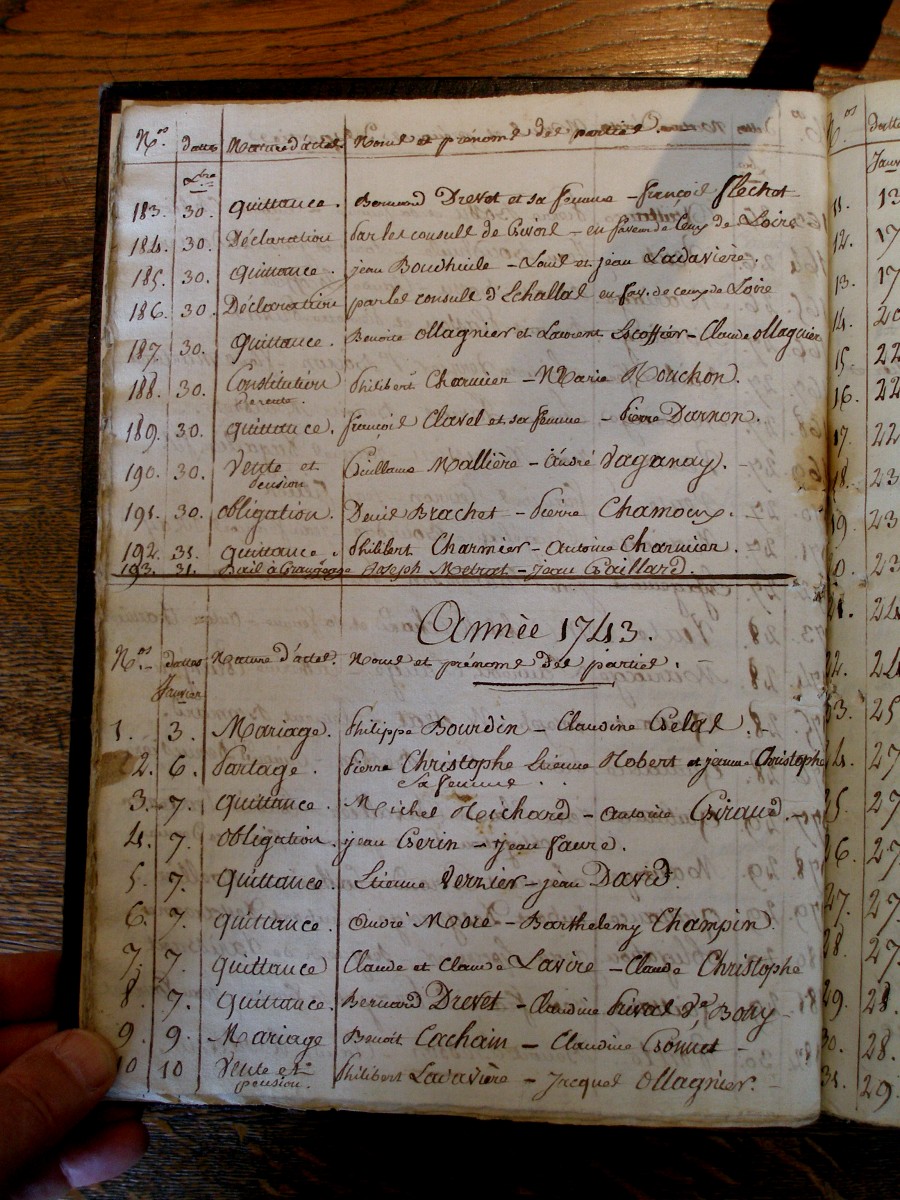 Nos. dattes Nature d'actes Noms et prénoms des parties.
Xbre
183. 30. quittance. Bernard Drevet et sa femme – françois fléchet
184. 30. Déclaration Par les consuls de Givors – en faveur de ceux de Loire
185. 30. quittance. jean – Louis et jean Ladavière.
186. 30. Déclaration par les consuls d'Echallas en fav. de ceux de Loire
187 30. quittance. Benoite Ollagnier et Laurent Escoffier – Claude ollagnier
188. 30. Constitution Philibert Charnier – Marie Mouchon.
de rente.
189. 30. quittance. françois Clavel et sa femme – Pierre Darnon.
190. 30. Vente et Guillaume Mallière – André Vaganay. –
pension
191. 30. obligation. Denis Brachet – Pierre Chamoux.
192. 31. quittance. Philibert Charnier – Antoine Charnier.
193. 31. Bail à Grangeage Joseph Metrat – jean Gaillard.
Année 1743.
Nos. dattes Nature d'actes. Noms et prénoms des parties.
Janvier
1. 3. Mariage. Philippe Bourdin – Claudine Gelas. –
2. 6. Partage. Pierre Christophe Etienne Robert et jeanne Christophe
sa femme.
3. 7. quittance. Michel Richard – Antoine Giraud. –
4. 7. obligation. jean Gerin – jean faure.
5. 7. quittance. Etienne Vernier – jean David.
6. 7. quittance. André More – Barthelemy Champin.
7. 7. quittance Claude et Claude Lavire – Claude Christophe
8. 7. quittance. Bernard Drevet – Claudine Bory
9. 9. Mariage Benoit Cachain – Claudine Bonnet –
10 10 Vente et Philibert Ladavière – Jacques Ollagnier.
pension.
Nos datte
Janv
11. 13
12. 17
13. 17
14. 20
15. 22
16. 22
17. 22
18. 23
19. 23
0. 23
21. 24
22. 24
23. 25
4. 27
25. 27
26. 27
27. 27
28. 27
29. 28
30. 28.
31. 29.